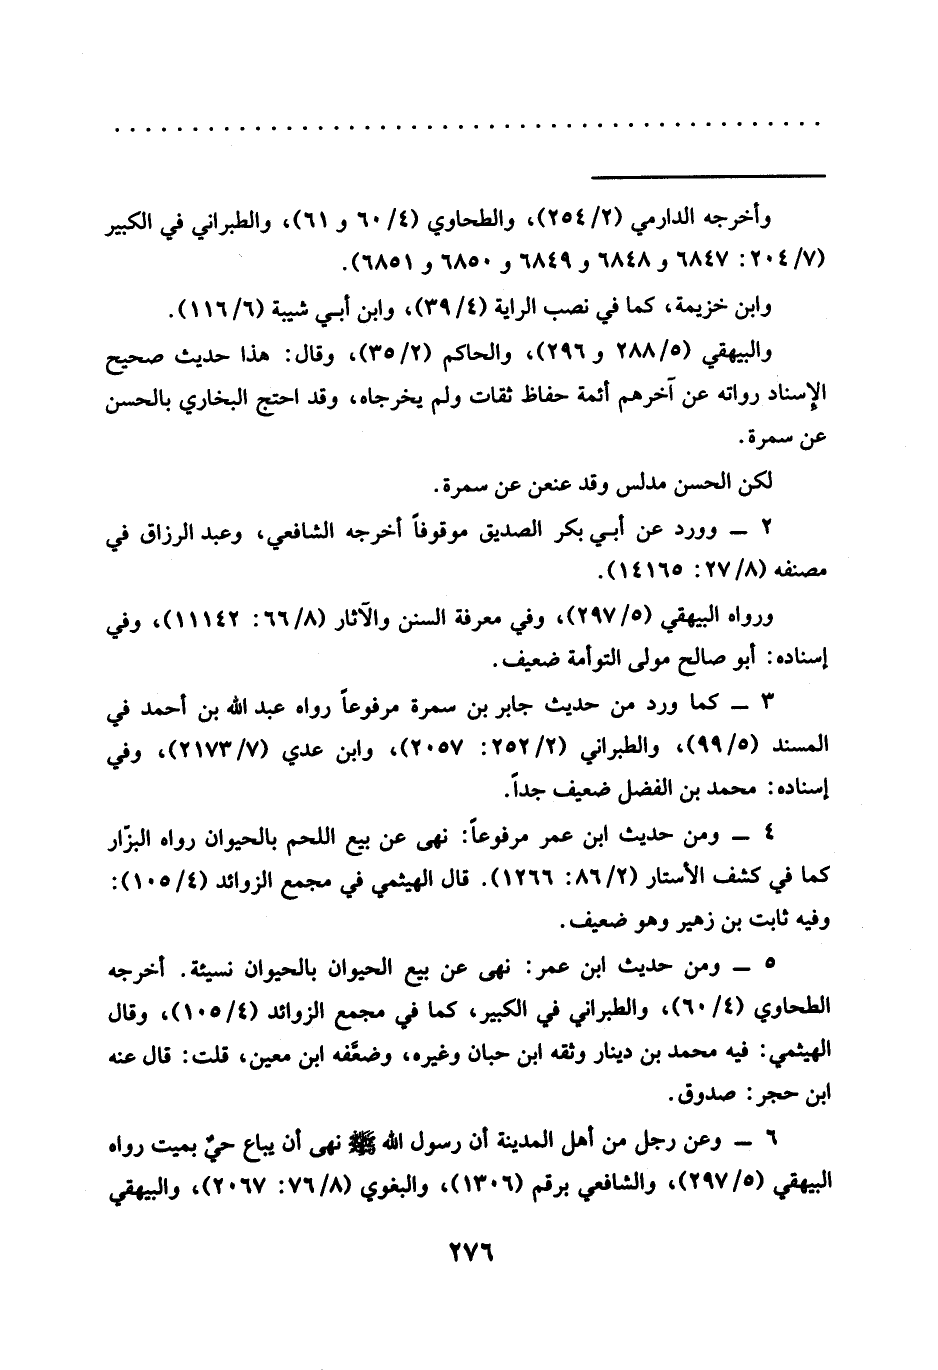 . . . . . . . . . . . . . . . . . . . . . . . . . . . . . . . . . . . . . . . . . . . .
وأخرجه الدارمي (٢/ ٢٥٤)، والطحاوي (٤/ ٦٠ و ٦١)، والطبراني في الكبير
(٧/ ٢٠٤: ٦٨٤٧ و ٦٨٤٨ و ٦٨٤٩ و ٦٨٥٠ و ٦٨٥١).
وابن خزيمة، كما في نصب الراية (٤/ ٣٩)، وابن أبي شيبة (٦/ ١١٦).
والبيهقي (٥/ ٢٨٨ و ٢٩٦)، والحاكم (٢/ ٣٥)، وقال: هذا حديث صحيح
الإسناد رواته عن آخرهم أئمة حفاظ ثقات ولم يخرجاه، وقد احتج البخاري بالحسن
عن سمرة.
لكن الحسن مدلس وقد عنعن عن سمرة.
٢ ــ وورد عن أبي بكر الصديق موقوفاً أخرجه الشافعي، وعبد الرزاق في
مصنفه (٨/ ٢٧: ١٤١٦٥).
ورواه البيهقي (٥/ ٢٩٧)، وفي معرفة السنن والآثار (٨/ ٦٦: ١١١٤٢)، وفي
إسناده: أبو صالح مولى التوأمة ضعيف.
٣ ــ كما ورد من حديث جابر بن سمرة مرفوعاً رواه عبد الله بن أحمد في
المسند (٥/ ٩٩)، والطبراني (٢/ ٢٥٢: ٢٠٥٧)، وابن عدي (٧/ ٢١٧٣)، وفي
إسناده: محمد بن الفضل ضعيف جداً.
٤ ــ ومن حديث ابن عمر مرفوعاً: نهى عن بيع اللحم بالحيوان رواه البزّار
كما في كشف الأستار (٢/ ٨٦: ١٢٦٦). قال الهيثمي في مجمع الزوائد (٤/ ١٠٥):
وفيه ثابت بن زهير وهو ضعيف.
٥ ــ ومن حديث ابن عمر: نهى عن بيع الحيوان بالحيوان نسيئة. أخرجه
الطحاوي (٤/ ٦٠)، والطبراني في الكبير، كما في مجمع الزوائد (٤/ ١٠٥)، وقال
الهيثمي: فيه محمد بن دينار وثقه ابن حبان وغيره، وضعَّفه ابن معين، قلت: قال عنه
ابن حجر: صدوق.
٦ ــ وعن رجل من أهل المدينة أن رسول الله ﷺ نهى أن يباع حيٌ بميت رواه
البيهقي (٥/ ٢٩٧)، والشافعي برقم (١٣٠٦)، والبغوي (٨/ ٧٦: ٢٠٦٧)، والبيهقي
٢٧٦